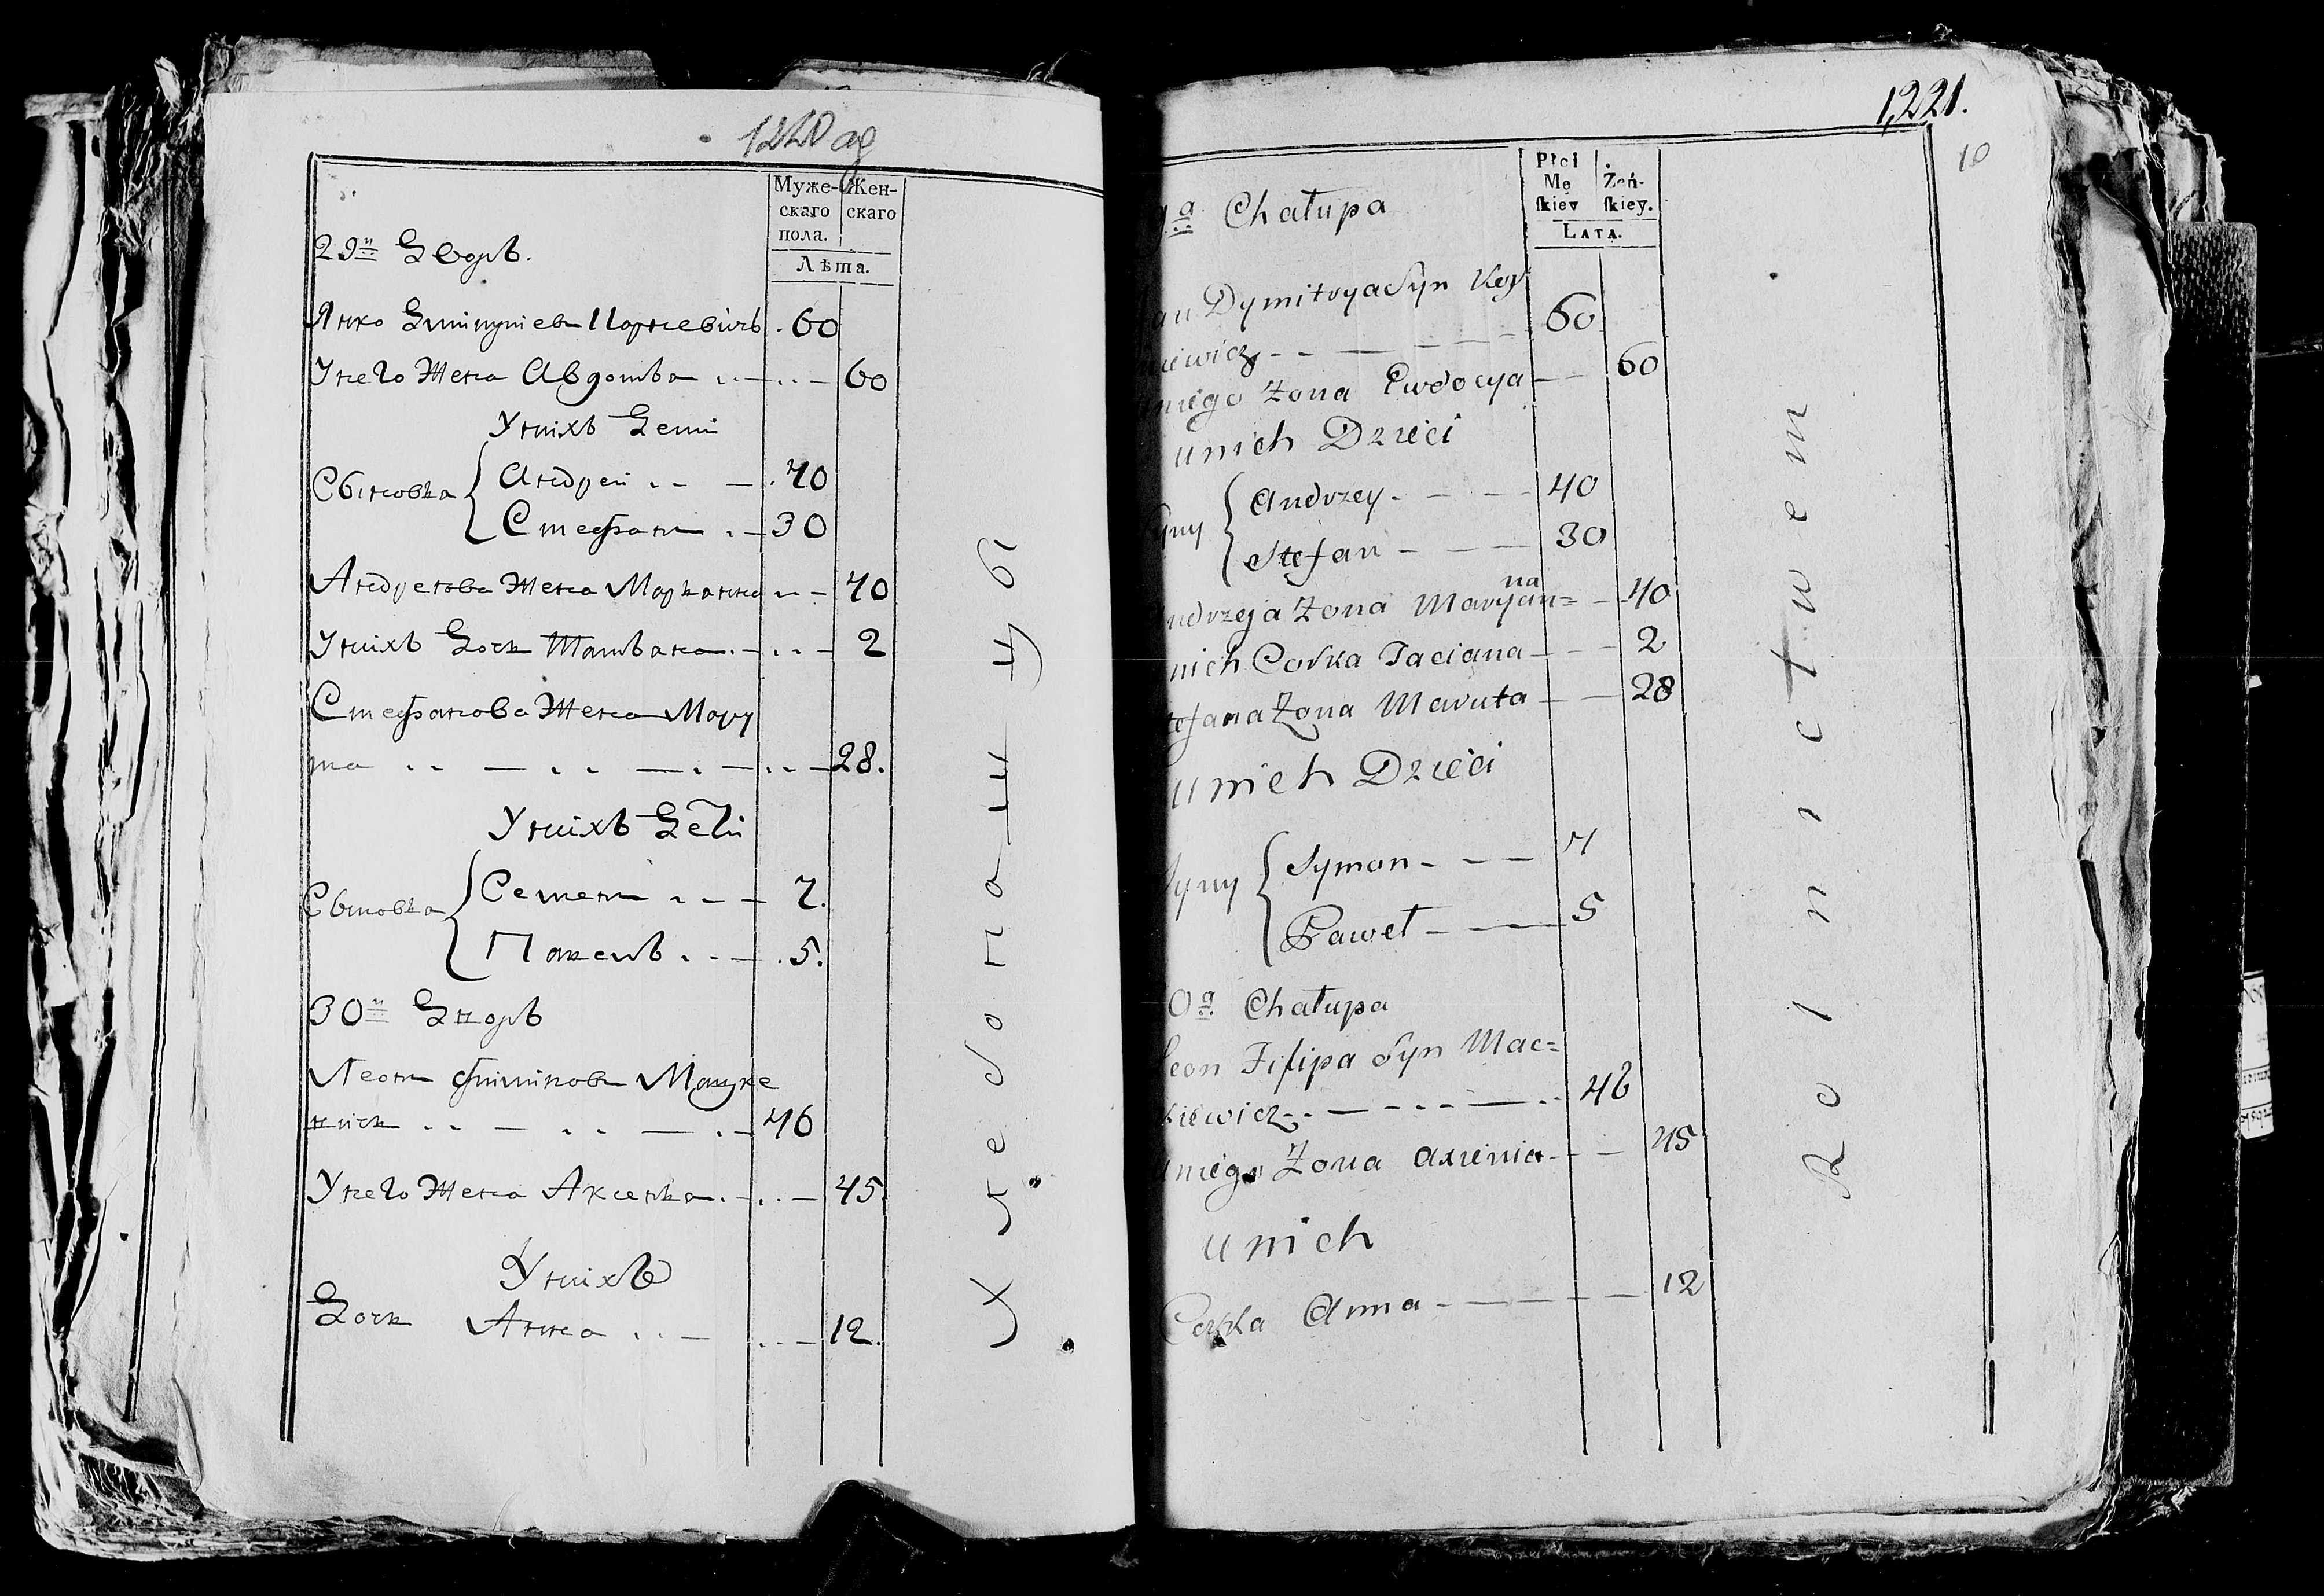 1220 ад
Муже-
скаго
пола.
Жен-
скаго
Лѣта.
29й Дворъ.
Янко Дмитріев 60
У него Жена Авдотья 60
У нихъ Дети
Сыновья Андрей 40
Стефан 30
Андреева Жена Марьянна 40
У нихъ Дочь Татьяна 2
Стефанова Жена Мару
та 28.
У нихъ Дети
Сыновья Семен 7.
Павелъ 5.
30й Дворъ
Леон Филипов Мацке
вич 46
У него Жена Аксенья 45
У нихъ
Дочь Анна 12.
Хлебопашцы
1,221.
10
Płci
Mę
skiey
Żeń-
skiey.
LATA.
9a Chałupa
an Dymitrya Syn
niewicz 60
u niego Zona Ewdocya 60
u nich Dzieci
Syny Andrzey 40
Stefan 30
ndrzeja Zona Maryan=na 40
nich Corka Taciana 2
tefana Zona Maruta 28
u nich Dzieci
Syny Symon 7
Paweł 5
0a Chałupa
Leon Filipa Syn Mac=
kiewicz 46
u niego Zona Axienia 45
u nich
Corka Anna 12
Rolnictwem